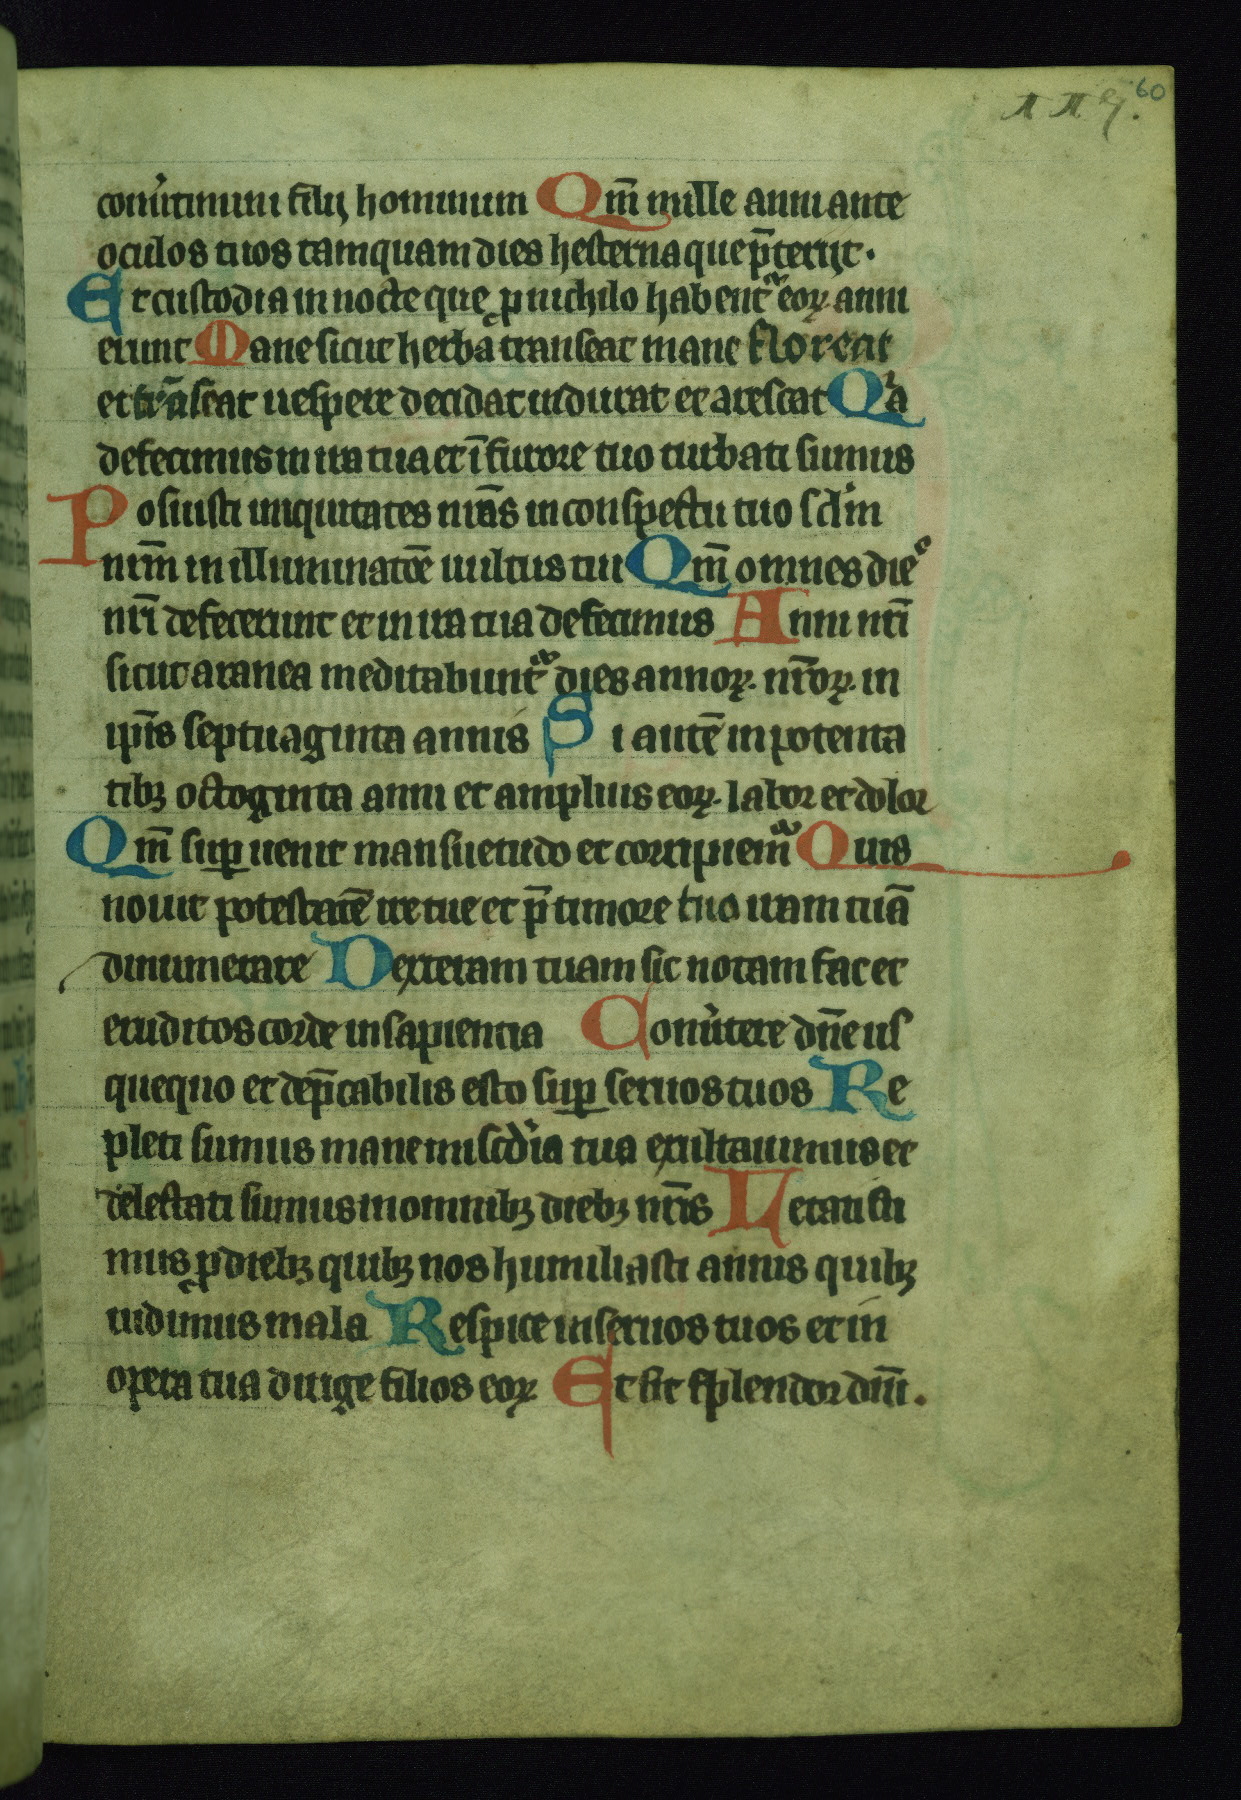 60
119.
conu̾timini filij hominum Qm̄ mille anni ante
oculos tuos tamquam dies hesterna que p̄terijt.
Et custodia in nocte que ꝓ nichilo habent᷑ eoꝝ anni
erunt Mane sicut herba transeat mane floreat
et tᷓnseat uespere decidat indurat et arescat Qͥa
defecimus in ira tua et ī furore tuo turbati sumus
Posuisti iniquitates nr̄as in conspectu tuo sclm̄
nrm̄ in illuminatōe uultus tui Qm̄ omnes dies
nr̄i defecerunt et in ira tua defecimus Anni nr̄i
sicut aranea meditabunt᷑ dies annoꝝ nr̄oꝝ in
ip̄is septuaginta annis Si autē in potenta
tibꝫ octoginta anni et amplius eoꝝ labor et dolor
Qm̄ suꝑ uenit mansuetudo et corripiem᷑ Quis
nouit potestatē ire tue et p̄ timore tuo iram tuā
dinumerare Dexteram tuam sic notam fac et
eruditos corde in sapientia Conu̾tere dn̄e us
quequo et dep̄cabilis esto suꝑ seruos tuos Re
pleti sumus mane misc̄dia tua exultauimus et
delectati sumus in omnibꝫ diebꝫ nr̄is Letati su
mus ꝓ diebꝫ quibꝫ nos humiliasti annis quibꝫ
uidimus mala Respice in seruos tuos et in
opera tua dirige filios eoꝝ Et sit splendor dn̄i.